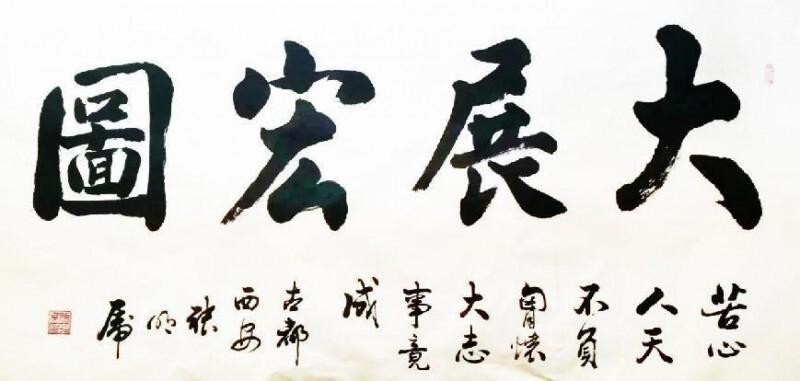 大展宏圖
苦心
人天
不負
胸懷
大志
事竟
成
古都
西安